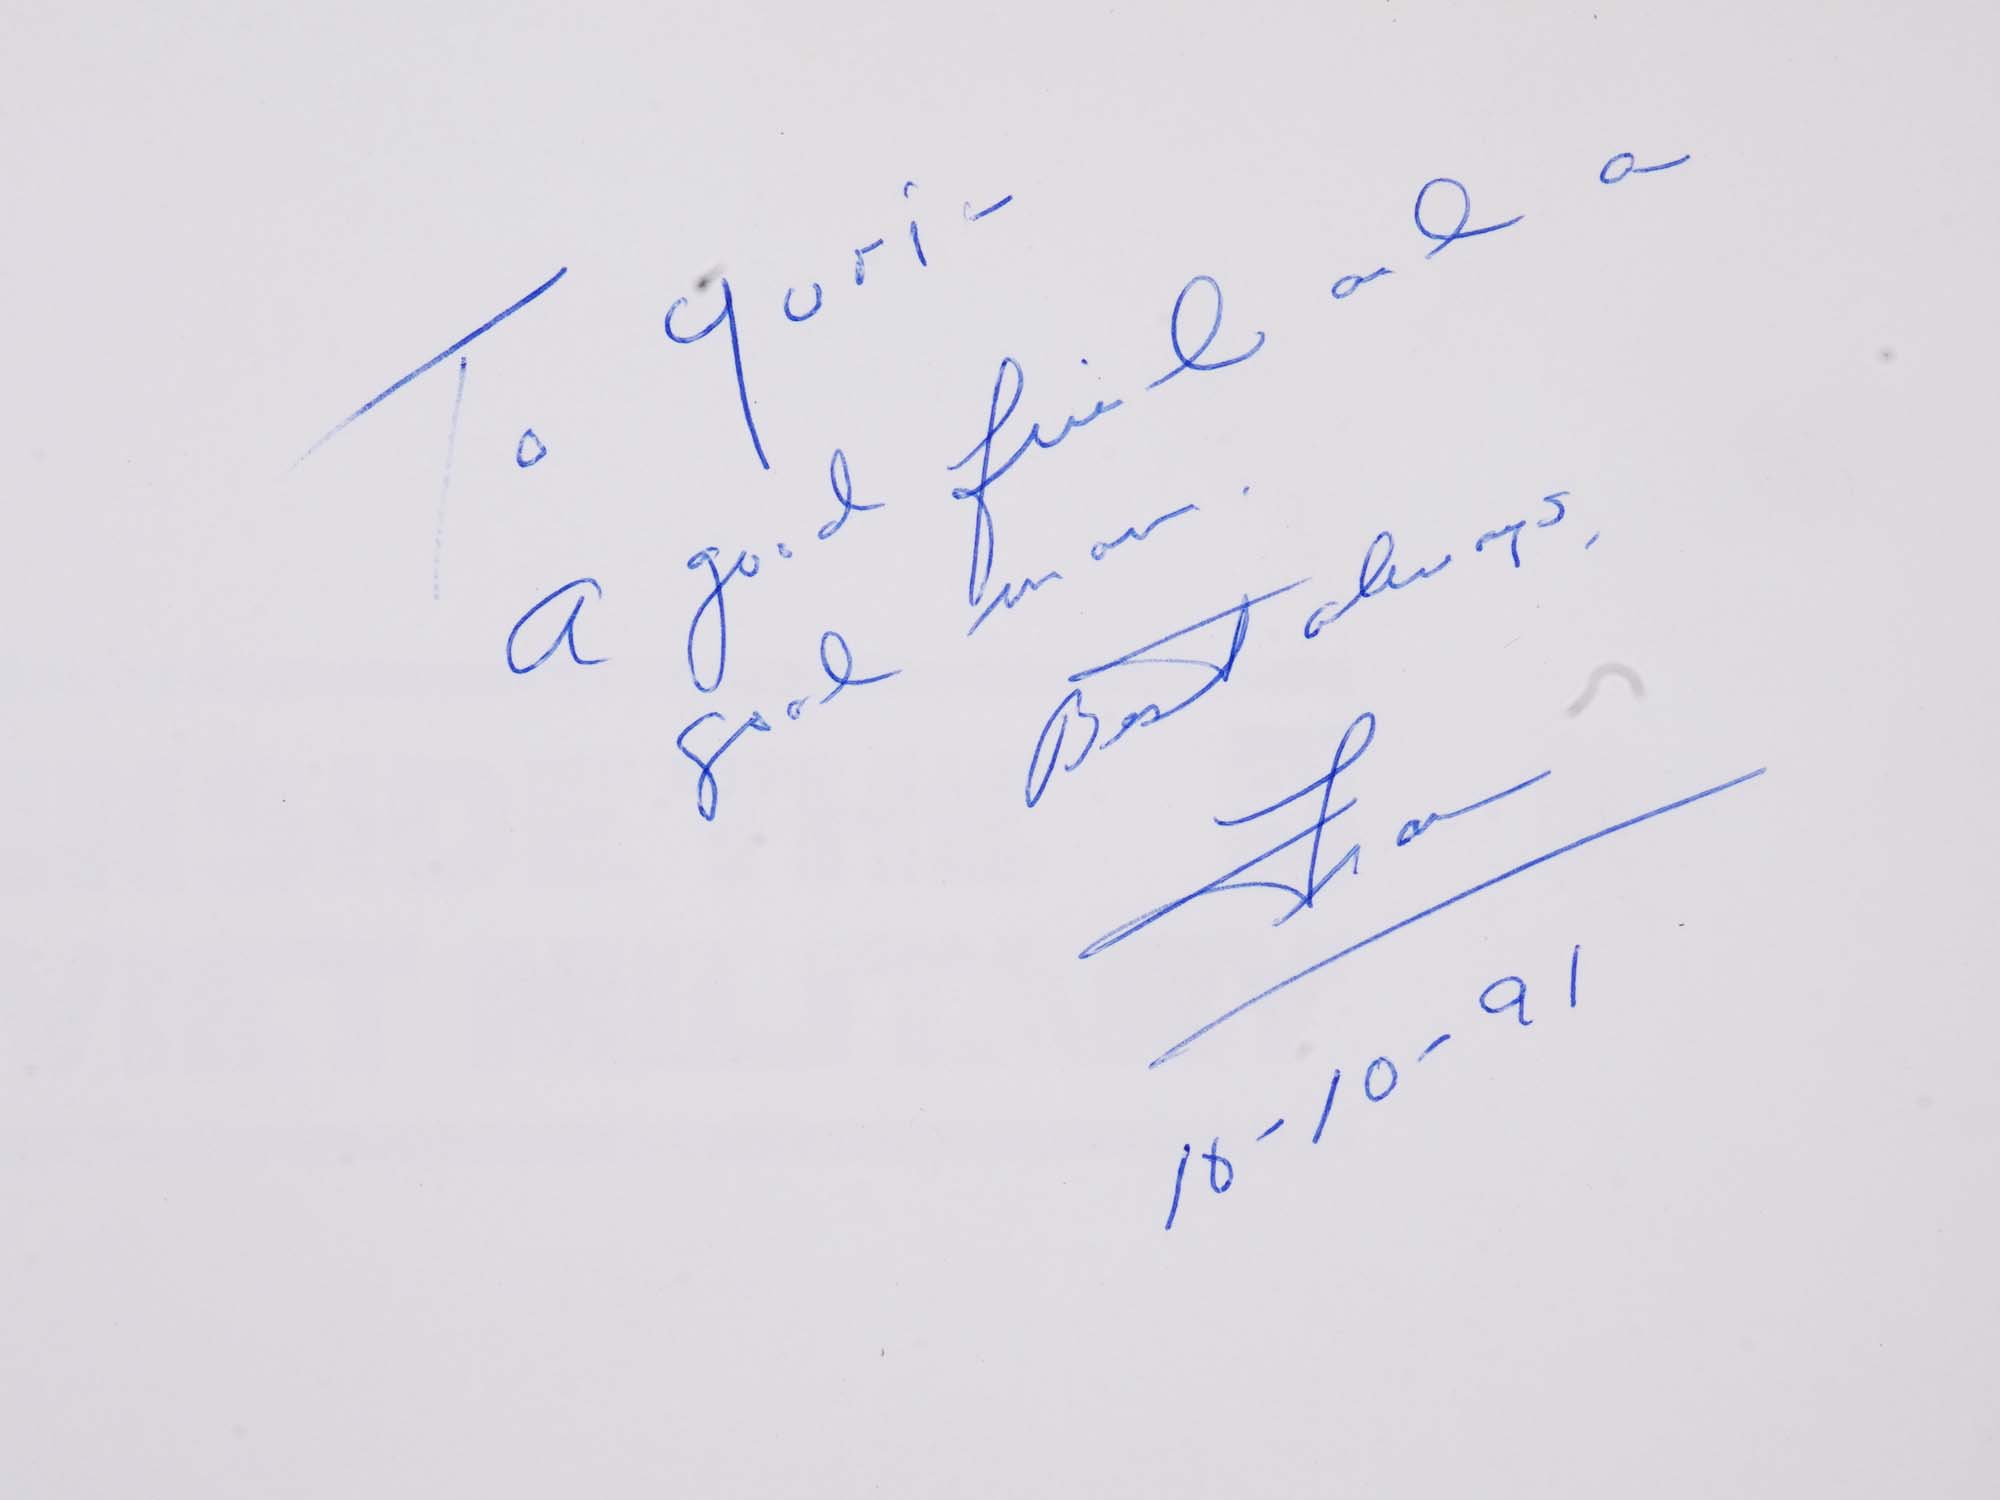 To Yuri -
A good friend and a
good man.
Best always,
Fran
18-10-91